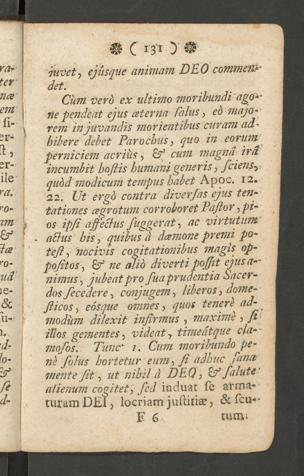 ❋ ( 131 ) ❋
iuvet, ejúsque animam DEO commen-
det.
Cùm verò ex ultimo moribundi ago-
ne pendeat ejus æterna salus, eò majo-
rem in juvandis morientibus curam ad-
hibere debet Parochus, quo in eorum
perniciem acriùs, & cum magnâ irâ
incumbit hostis humani generis, sciens,
quòd modicum tempus habet Apoc. 12.
22. Ut ergò contra diversas ejus ten-
tationes ægrotum corroboret Pastor, pi-
os ipsi affectus suggerat, ac virtutum
actus his, quibus à dæmone premi po-
test, nocivis cogitationibus magìs op-
positos, & ne aliò diverti possit ejus a-
nimus, jubeat pro sua prudentia Sacer-
dos secedere, conjugem, liberos, dome-
sticos, eósque omnes, quos tenerè ad-
modùm dilexit infirmus, maximè, si
illos gementes, videat, timeátque cla-
mosos. Tunc 1. Cum moribundo pe-
nè solus hortetur eum, si adhuc sanæ
mente sit, ut nihil à DEO, & salute
alienum cogitet, sed induat se arma-
turam DEI, locriam justitiæ, & scu-
F 6 tum